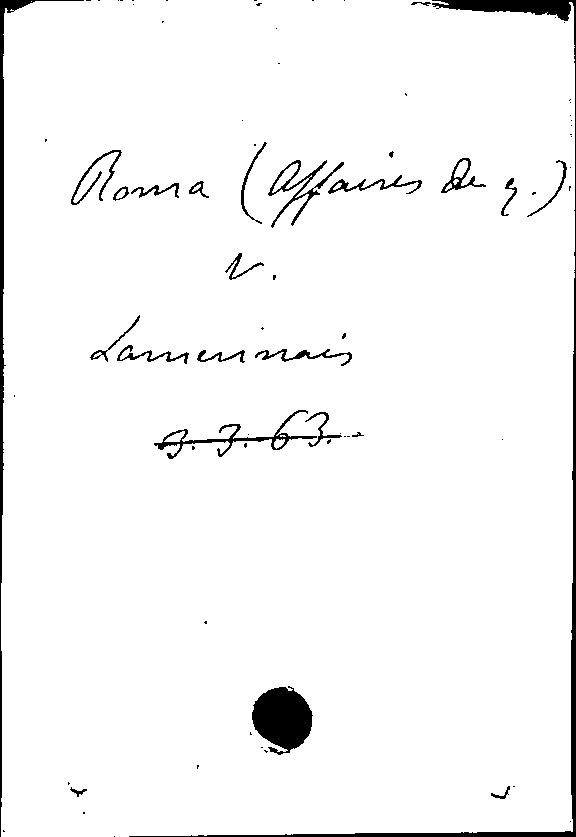 Roma (Affaires de
V.
Lamennais
3.3.63.